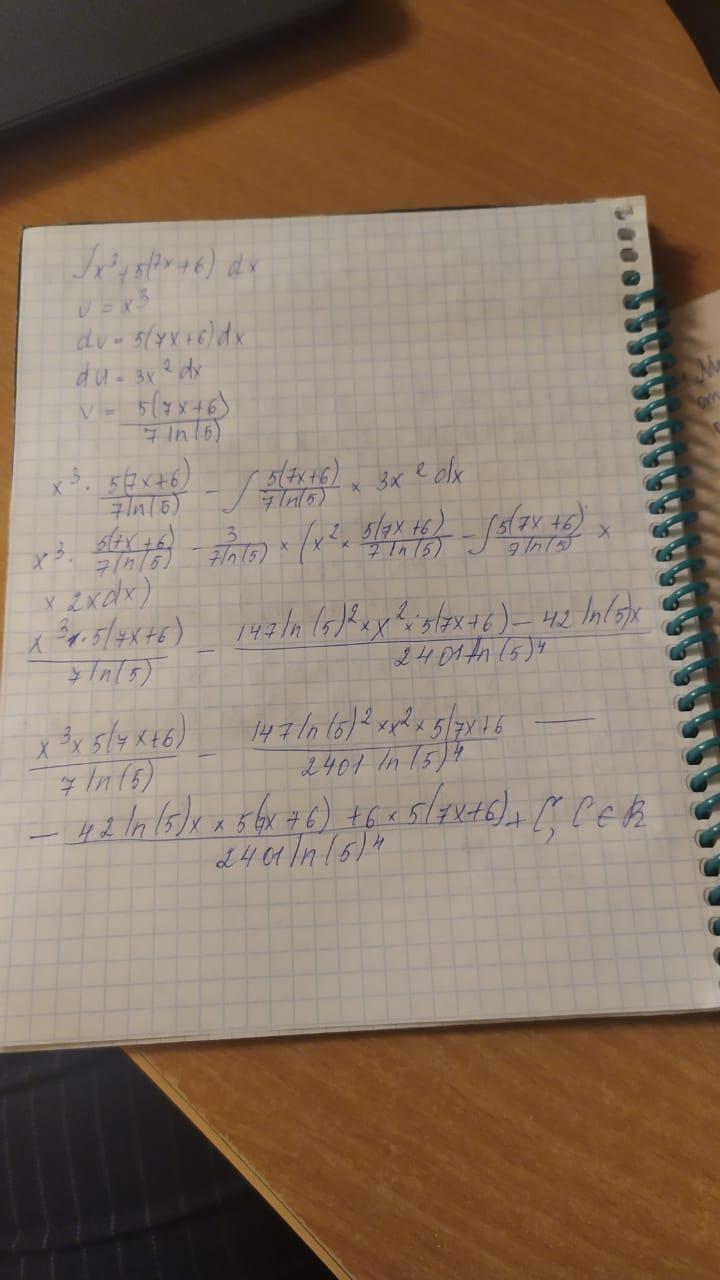 ∫x³+5(7x+6) dx
v = x³
dv = 5(7x+6)dx
du = 3x² dx
v = 5(7x+6) / 7 ln(5)
x³ · 5(7x+6) / 7 ln(5) − ∫ 5(7x+6) / 7 ln(5) × 3x² dx
x³ · 5(7x+6) / 7 ln(5) − 3 / 7 ln(5) × (x² × 5(7x+6) / 7 ln(5) − ∫ 5(7x+6) / 7 ln(5) ×
× 2xdx)
x³ × · 5(7x+6) / 7 ln(5) − 147 ln(5)² × x² × 5(7x+6) − 42 ln(5)x / 2401 ln(5)⁴
x³ × 5(7x+6) / 7 ln(5) − 147 ln(5)² × x² × 5(7x+6 / 2401 ln(5)⁴ —
− 42 ln(5)x × 5(7x+6) + 6 × 5(7x+6) / 2401 ln(5)⁴ + C, C ∈ R